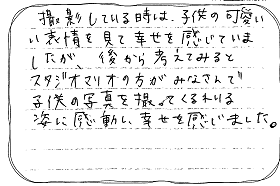 撮影している時は、子供の可愛い
い表情を見て幸せを感じていま
したが、後から考えてみると
スタジオマリオの方がみなさんで
子供の写真を撮ってくれている
姿に感動し、幸せを感じました。